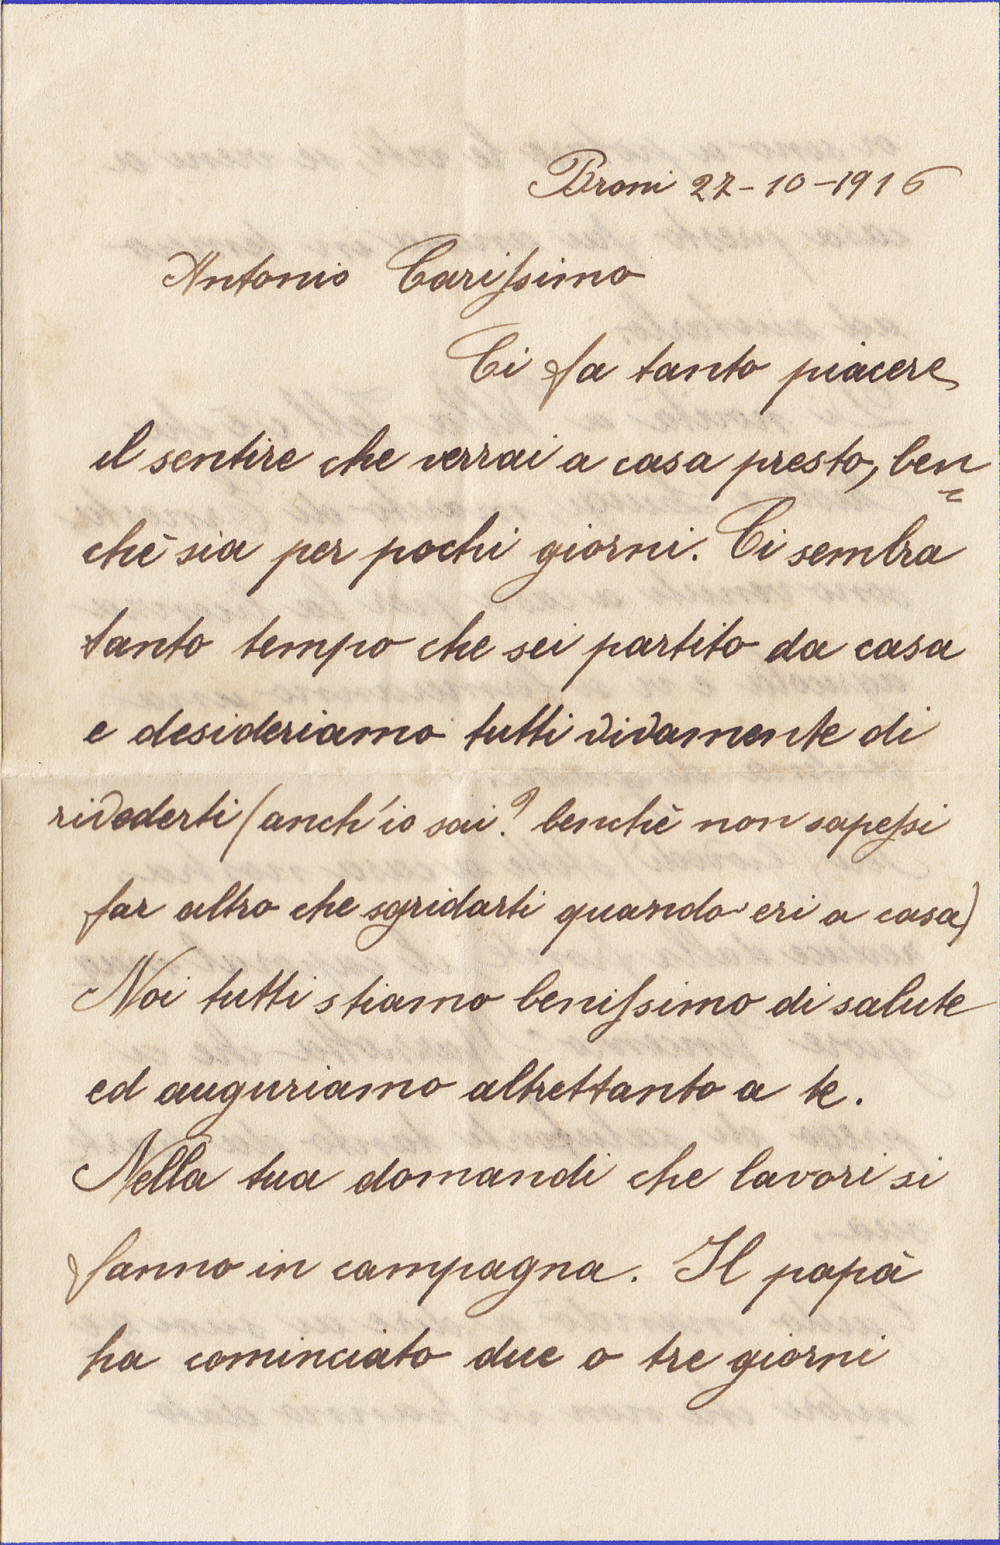 Broni 27-10-1916
Antonio Carissimo
Ci fa tanto piacere
il sentire che verrai a casa presto, ben
chè sia per pochi giorni. Ci sembra
tanto tempo che sei partito da casa
e desideriamo tutti vivamente di
rivederti (anch'io sai? benchè non sapessi
far altro che sgridarti quando eri a casa)
Noi tutti stiamo benissimo di salute
ed auguriamo altrettanto a te.
Nella tua domandi che lavori si
fanno in campagna. Il papà
ha cominciato due o tre giorni